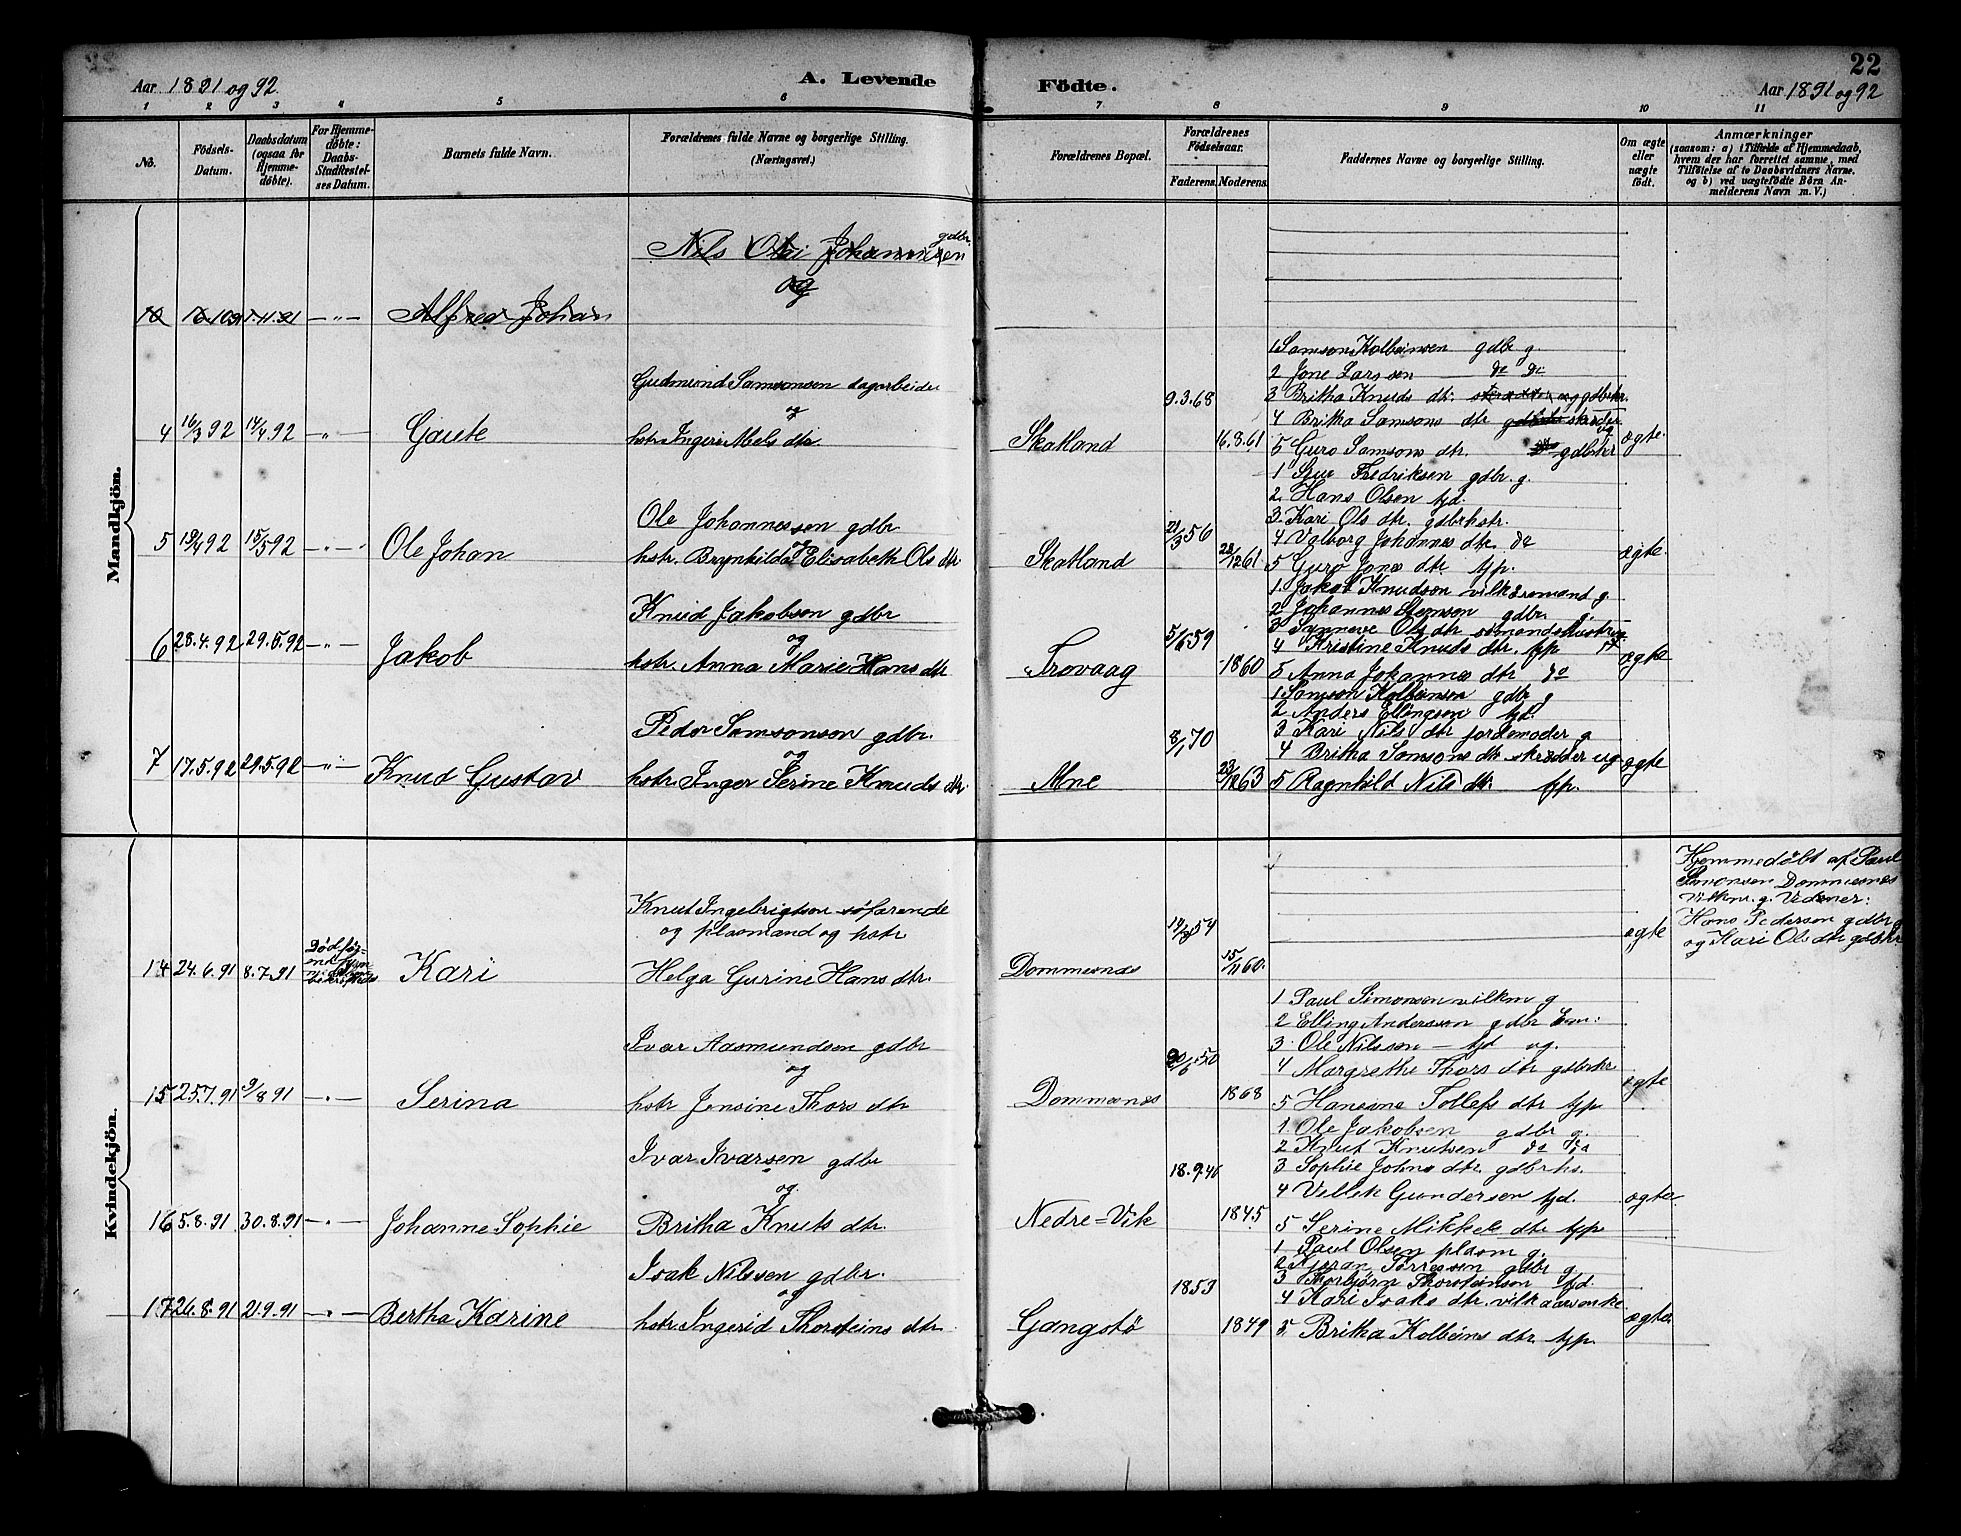 22
Aar 1891 og 92. A. Levende Födte. Aar 1891 og 92
1 2 3 4 5 6 7 8 9 10 11
No.
Födsels-Datum.
Daabsdatum (ogsaa for Hjemme-döbte).
For Hjemme-döbte: Daabs-Stadfæstel-ses Datum.
Barnets fulde Navn.
Forældrenes fulde Navne og borgerlige Stilling. (Næringsvei.)
Forældrenes Bopæl.
Forældrenes Födselsaar.
Faderens. Moderens.
Faddernes Navne og borgerlige Stilling.
Om ægte eller uægte födt.
Anmærkninger
(saasom: a) i Tilfælde af Hjemmedaab, hvem der har forrettet samme, med Tilföielse af to Daabsvidners Navne. og b) ved uægtefödte Börn An-melderens Navn m. V.)
Mandkjön.
Nils Olai Johannesen gdbr.
og
10 16.10.91 1.11.91 — " — Alfred Johan
Gudmund Samsonsen dagarbeider
og
4 16/3 92 17/4 92 — " — Gaute
hstr. Ingeri Mels dtr.
Skatland 9.3.68 16.8.61
1 Samson Kolbeinsen gdbr g.
2 Jone Larssen do do
3 Britha Knuds dtr. gdbrkr.
4 Britha Samsons dtr
5 Guro Samsons dtr. gdbrkr
ægte.
Ole Johannessen gdbr
og
5 19/4 92 15/5 92 — " — Ole Johan
hstr. Brynhilda Elisabeth Ols dtr.
Skatland 21/3 56 22/12 61
1 Sjur Fredriksen gdbr. g.
2. Hans Olsen tjd.
3. Kari Ols dtr. gdbrhstr.
4 Valborg Johannes dtr. do
5 Guro Jons dtr tjp.
ægte.
Knud Jakobsen gdbr
og
6 28.4.92 29.5.92 — " — Jakob
hstr. Anna Marie Hans dtr
Trovaag 59 1860
1. Jakob Knudsen vilkaarsmand g
2 Johannes Stensen gdbr.
3 Synneve Ols dtr
4 Kristine Knuds dtr. tjp
5 Anna Johannes dtr do
ægte
Peder Samsonson gdbr.
og
7 17.5.92 29.5.92 — " — Knud Gustav
hstr. Inger Serine Knuds dtr.
Mne 8/1 70 23/12 63
1 Samson Kolbeinsen gdbr g
2 Anders Ellingsen tjd.
3 Kari Nils dtr jordemoder g
4 Britha Samsons dtr. skrædder ug
5 Ragnhild Nils dtr. tjp.
ægte
Kvindekjön.
Knut Ingebrigtsen söfarende
og plasmand og hstr
14 24.6.91 8.7.91 Kari
Helga Gurine Hans dtr.
Dommesnæs 54 15/11 60.
ægte
Hjemmedöbt af Paul
Simonsen Dommesnæs
Vilkm. g. Vidner:
Hans Pederson gdbr g
og Kari Ols dtr gdbkr
Ivar Aasmundsen gdbr
og
15 25.7.91 9/8 91 — " — Serina
hstr Jensine Thors dtr
Dommesnæs 50 1868
1 Paul Simonsen vilkm g
2 Elling Anderssen gdbr Em:
3. Ole Nilssen — tjd ug.
4 Margrethe Thors dtr gdbrkr
5 Hansine Tollefs dtr tjp
ægte
Ivar Ivarsen gdbr
og
16 5.8.91 30.8.91 — " — Johanne Sophie
Britha Knuts dtr.
Nedre=Vik 18.9.46 1845
1. Ole Jakobsen gdbr g.
2 Knut Knutsen do do
3 Sophie Johns dtr. gdbrhs.
4 Villek Gundersen tjd.
5 Serine Mikkels dtr tjp
ægte.
Isak Nilssen gdbr.
og
17 26.8.91 21.9.91 — " — Bertha Karine
hstr. Ingerid Thorsteins dtr.
Gangstö 1853 1849
1 Paul Olsen plasm g.
2 Kjöran Torressen gdbr g.
3 Thorbjörn Thorsteinsen tjd.
4 Kari Isaks dtr. vilkaarsenke
5 Britha Kolbeins dtr. tjp.
ægte